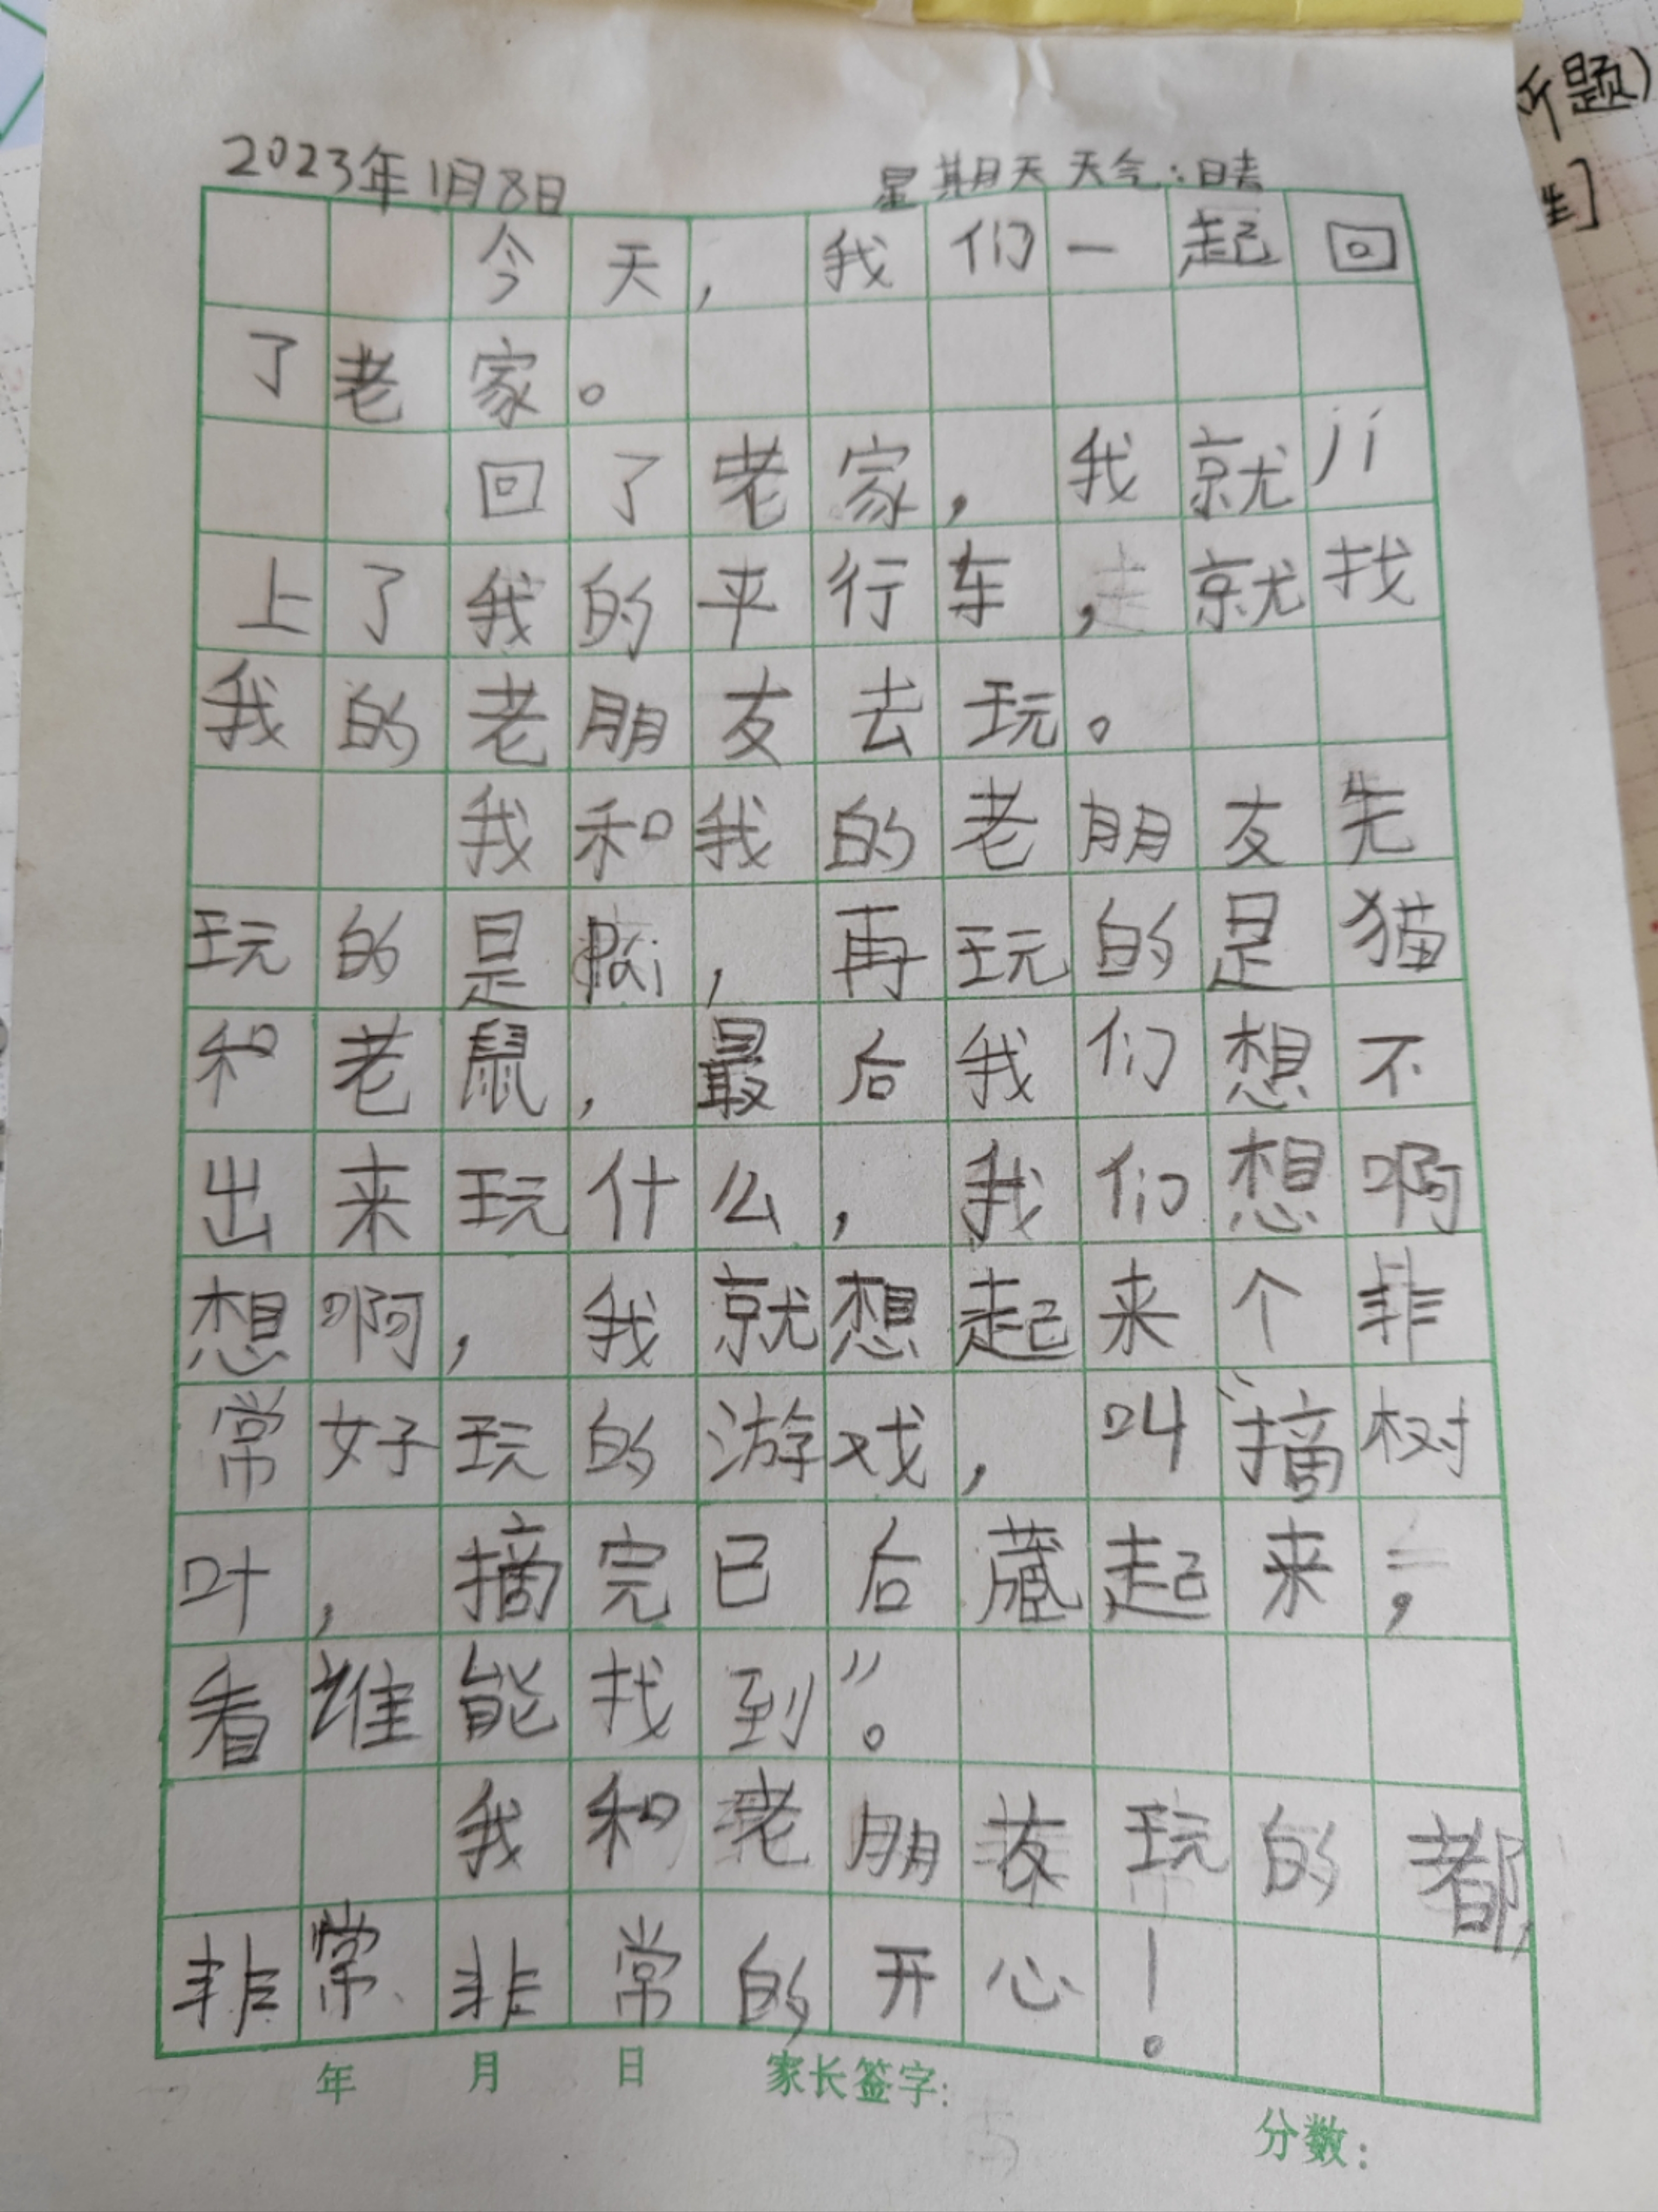 2023年1月8日 星期天 天气:晴
今天,我们一起回
了老家。
回了老家,我就ji
上了我的平行车,就找
我的老朋友去玩。
我和我的老朋友先
玩的是pai,再玩的是猫
和老鼠,最后我们想不
出来玩什么,我们想啊
想啊,我就想起来个非
常好玩的游戏,叫“摘树
叶,摘完已后藏起来,
看谁能找到”。
我和老朋友玩的都
非常、非常的开心!
年 月 日 家长签字:
分数:
题)
]